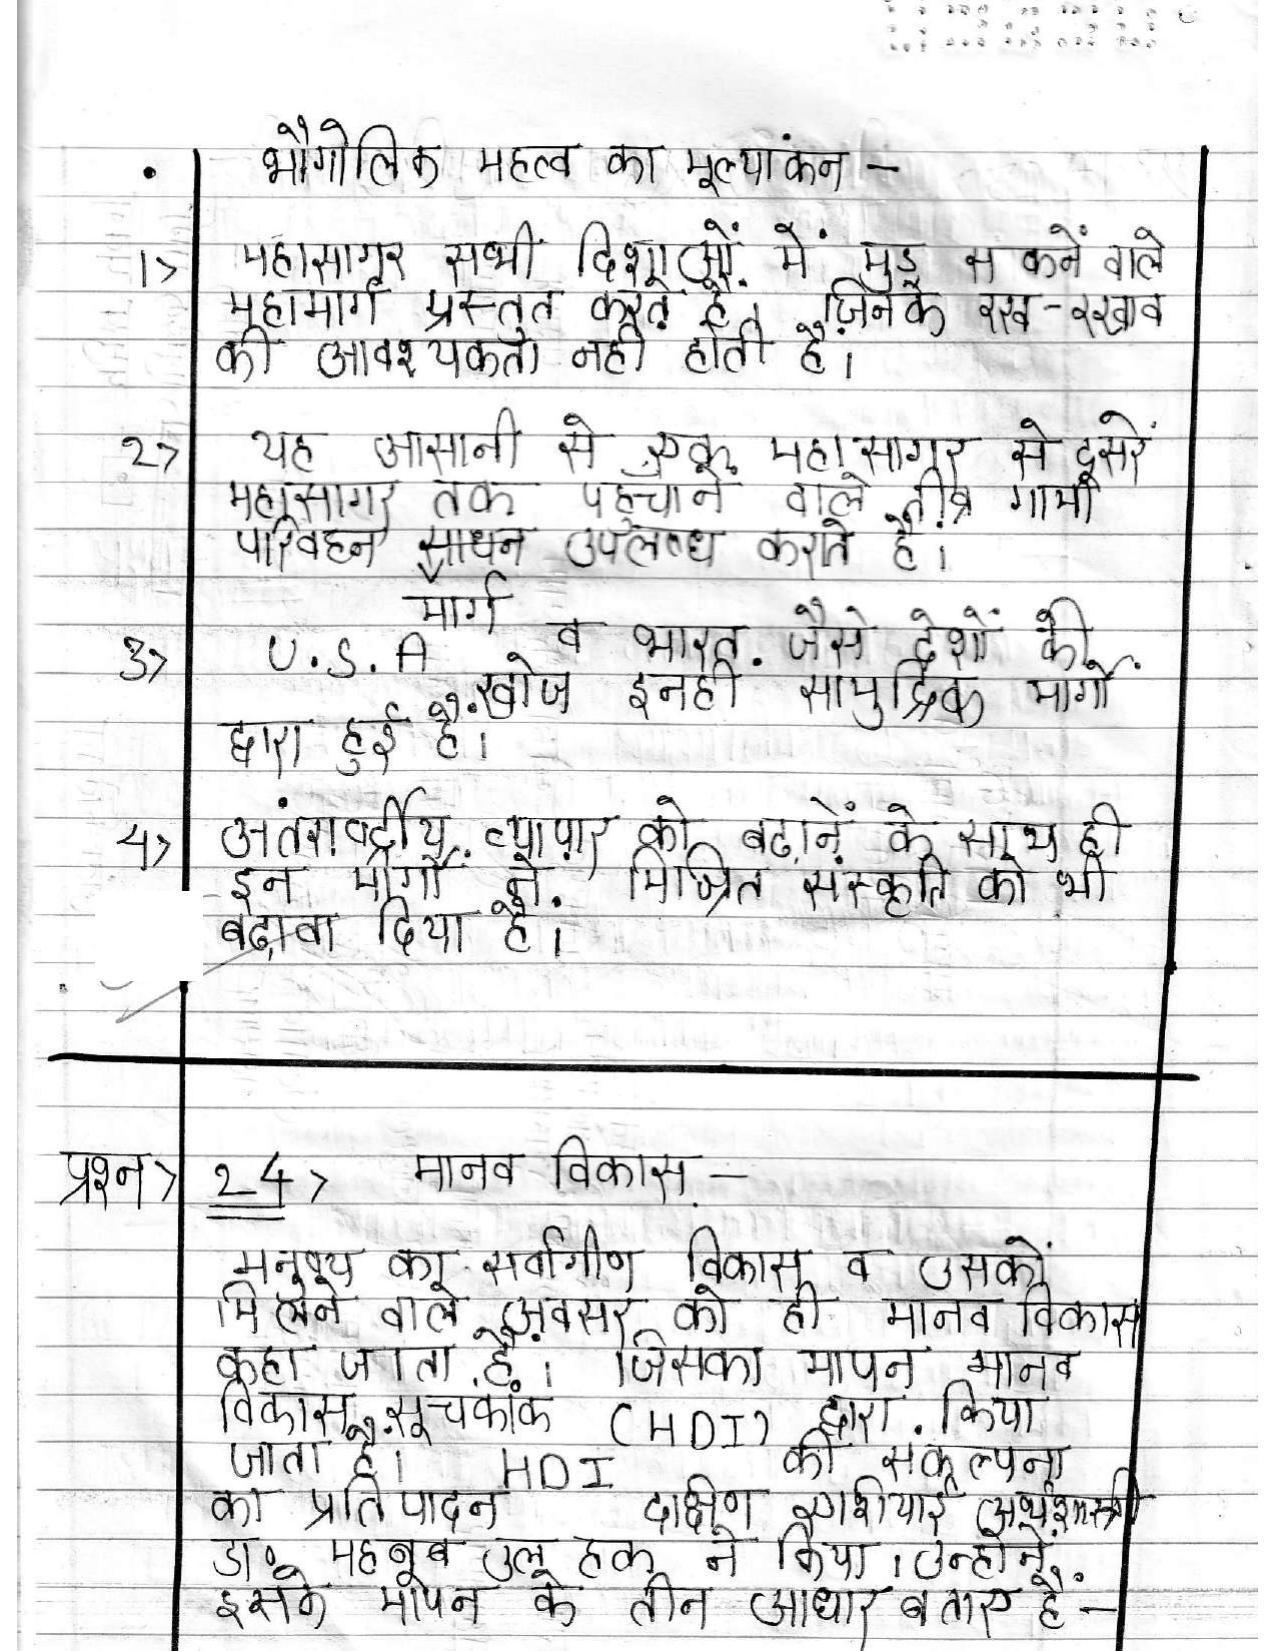 • भौगोलिक महत्व का मूल्यांकन –
1> महासागर सभी दिशाओं में मुड़ सकनें वाले
महामार्ग प्रस्तुत करते है, जिनके रख-रखाव
की आवश्यकता नही होती है।
2> यह आसानी से एक महासागर से दूसरें
महासागर तक पहुचाने वाले तीव्र गामी
परिवहन साधन उपलब्ध कराते है।
मार्ग
3> U.S.A व भारत जैसे देशों की
खोज इनही सामुद्रिक मार्गों
द्वारा हुई है।
4> अंतराष्ट्रीय व्यापार को बढानें के साथ ही
इन मार्गों ने मिश्रित संस्कृति को भी
बढ़ावा दिया है।
प्रश्न> 24> मानव विकास –
मनुष्य का सर्वागीण विकास व उसकों
मिलने वाले अवसर को ही मानव विकास
कहा जाता है। जिसका मापन मानव
विकास सूचकांक (HDI) द्वारा किया
जाता है। HDI की संकल्पना
का प्रतिपादन दक्षिण एशियाई अर्थशास्त्री
डा॰ महबूब उल हक ने किया। उन्होने
इसके मापन के तीन आधार बताए है –